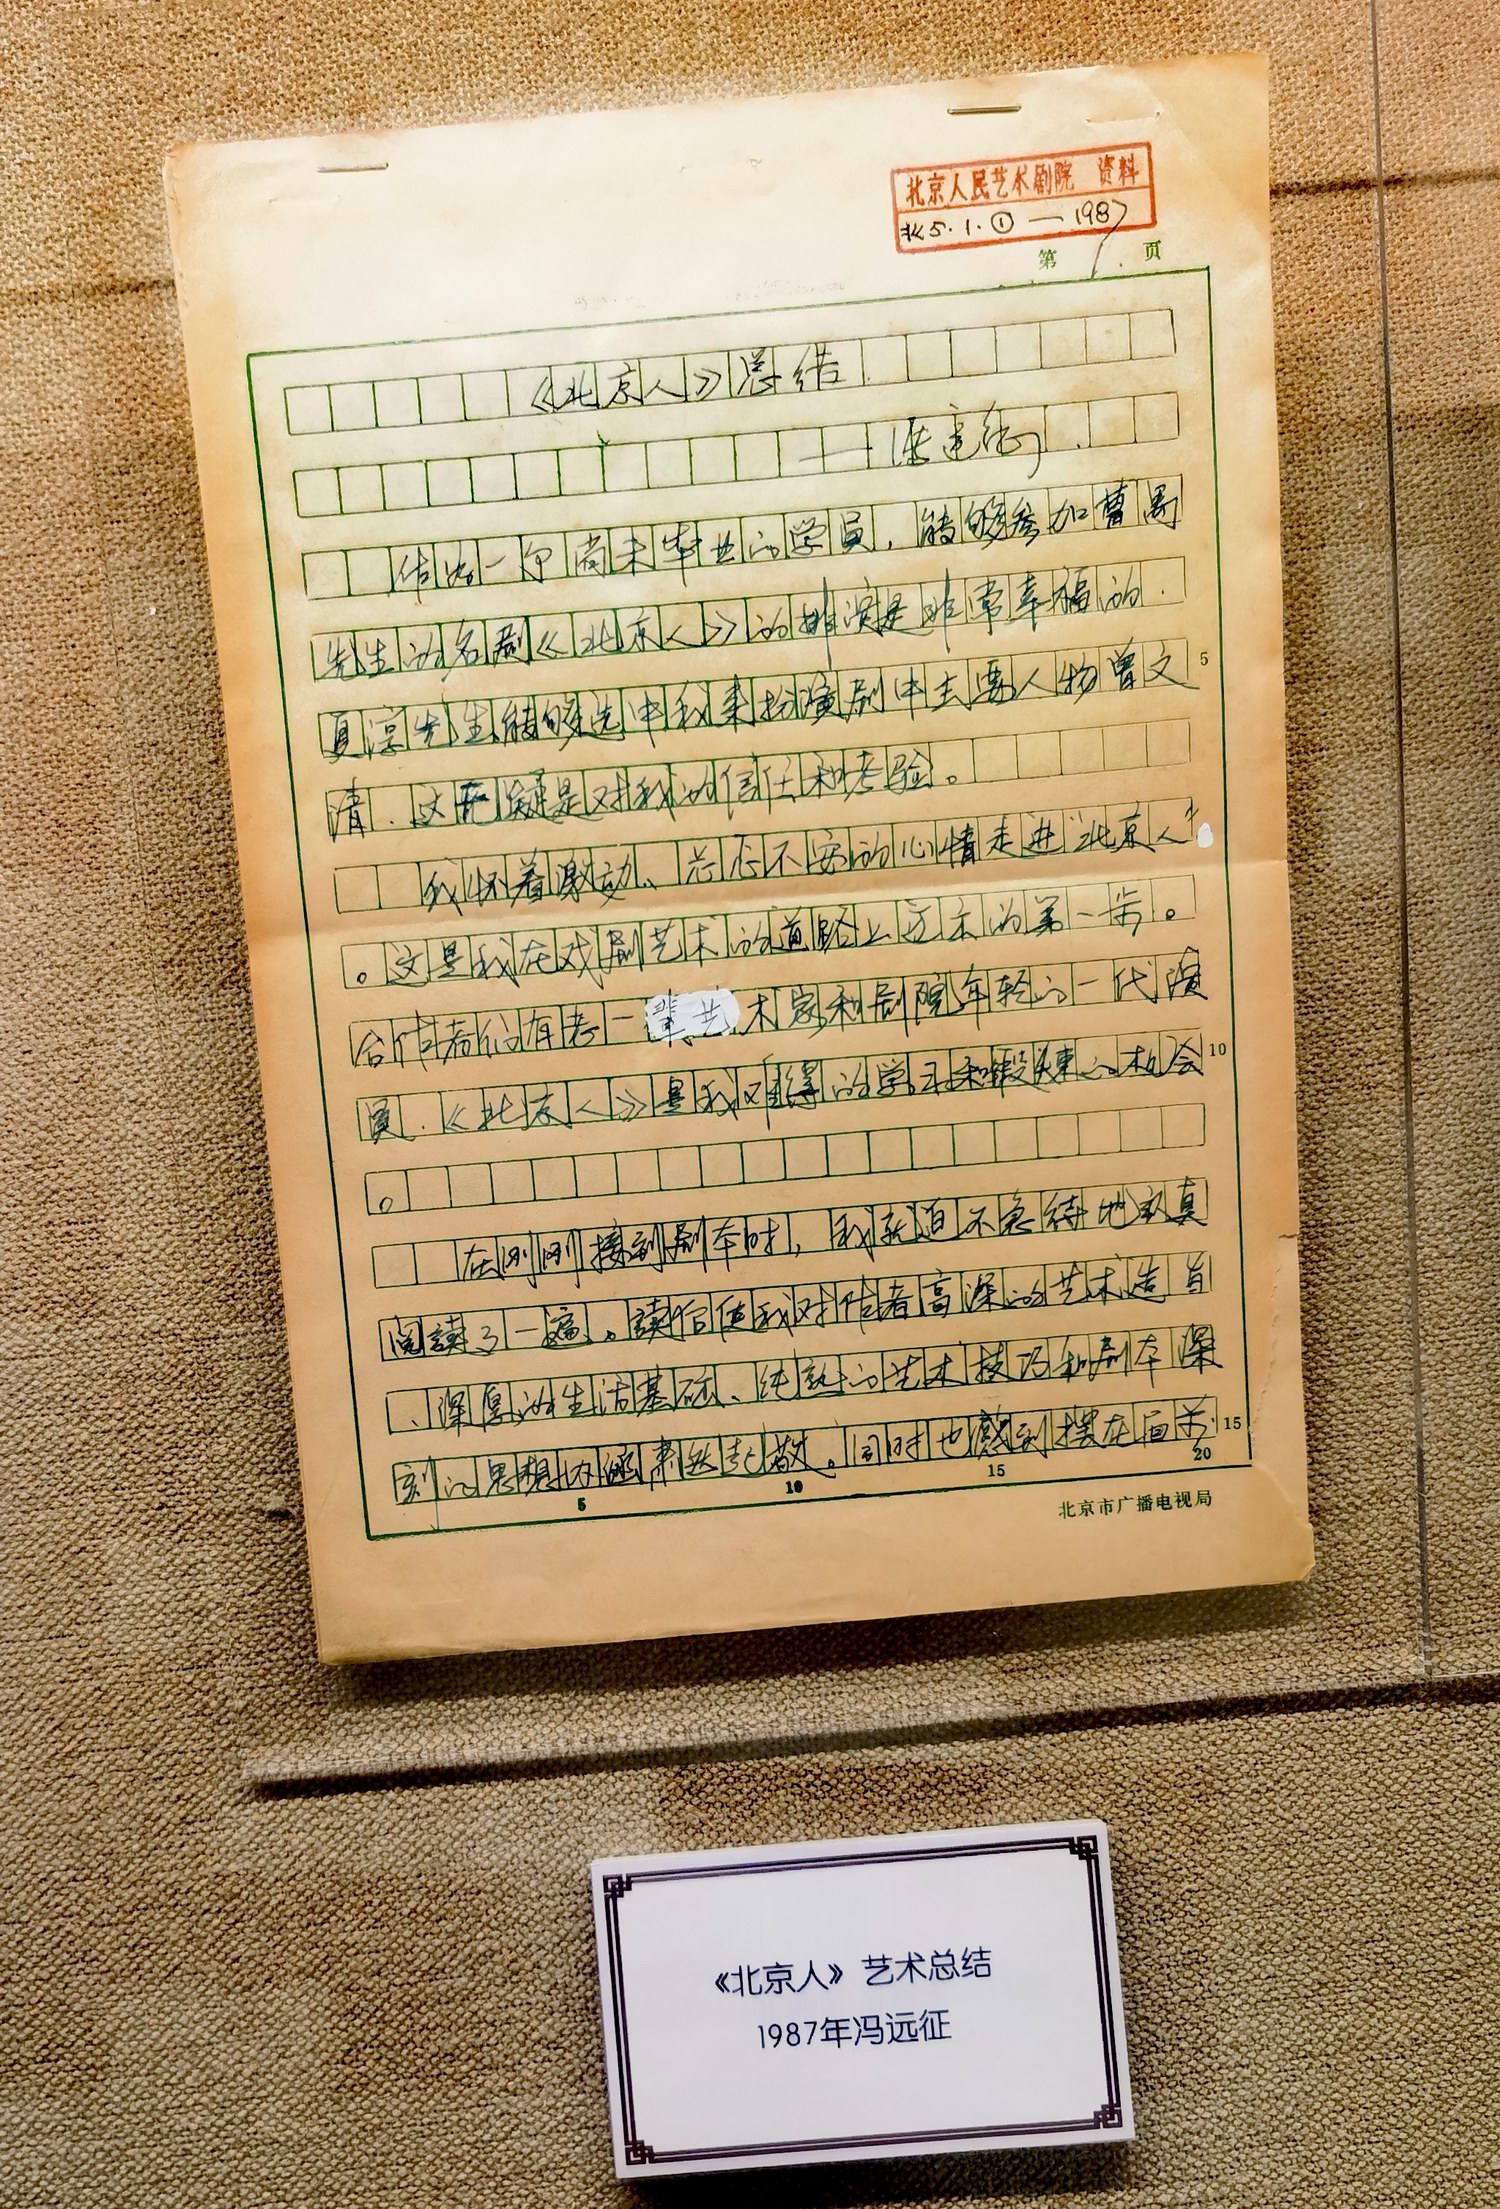 北京人民艺术剧院 资料
5.1.①—1987
第 1 页
《北京人》总结
——冯远征
作为一个尚未毕业的学员，能够参加曹禺
先生的名剧《北京人》的排演是非常幸福的.
夏淳先生能够选中我来扮演剧中主要人物曾文
清.这无疑是对我的信任和考验。
我怀着激动、忐忑不安的心情走进"北京人"
。这是我在戏剧艺术的道路上迈出的第一步。
合作者们有老一辈艺术家和剧院年轻的一代演
员.《北京人》是我难得的学习和锻炼的机会
。
在刚刚接到剧本时，我就迫不急待地认真
阅读了一遍。读后使我对作者高深的艺术造旨
、深厚的生活基础、纯熟的艺术技巧和剧本深
刻的思想内涵肃然起敬。同时也感到摆在面前
5
10
15
5 10 15 20
北京市广播电视局
《北京人》艺术总结
1987年冯远征